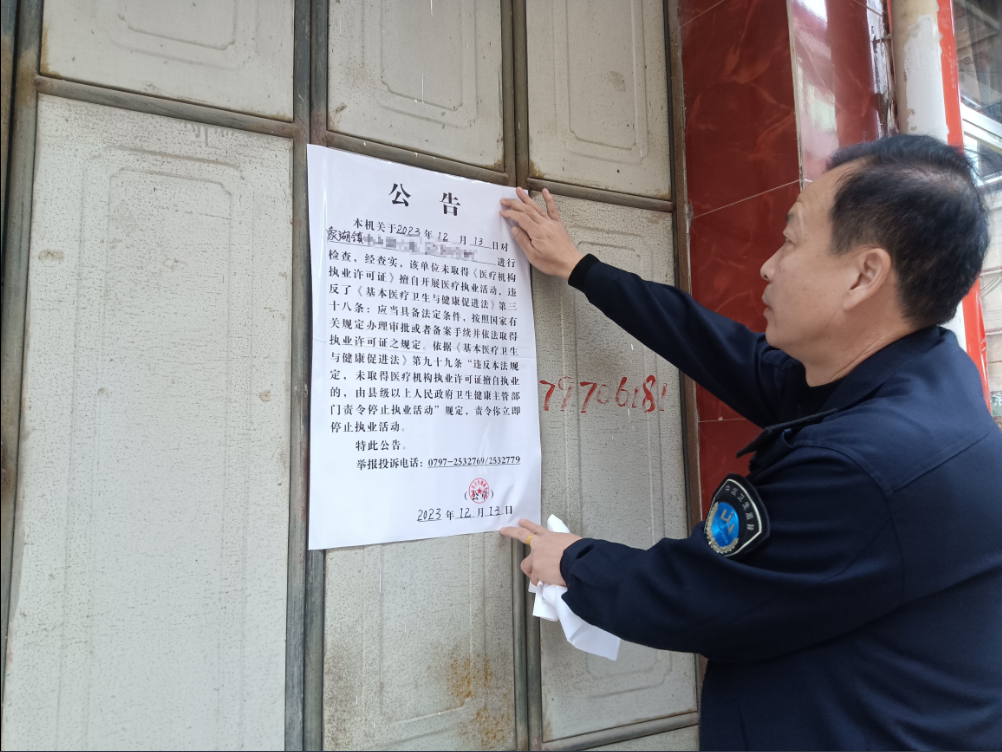 公告
本机关于2023年12月13日对
湖镇
进行
检查，经查实，该单位未取得《医疗机构
执业许可证》擅自开展医疗执业活动，违
反了《基本医疗卫生与健康促进法》第三
十八条：应当具备法定条件，按照国家有
关规定办理审批或者备案手续并依法取得
执业许可证之规定。依据《基本医疗卫生
与健康促进法》第九十九条“违反本法规
定，未取得医疗机构执业许可证擅自执业
的，由县级以上人民政府卫生健康主管部
门责令停止执业活动”规定，责令你立即
停止执业活动。
特此公告。
举报投诉电话：0797-2532769/2532779
2023年12月13日
7970618